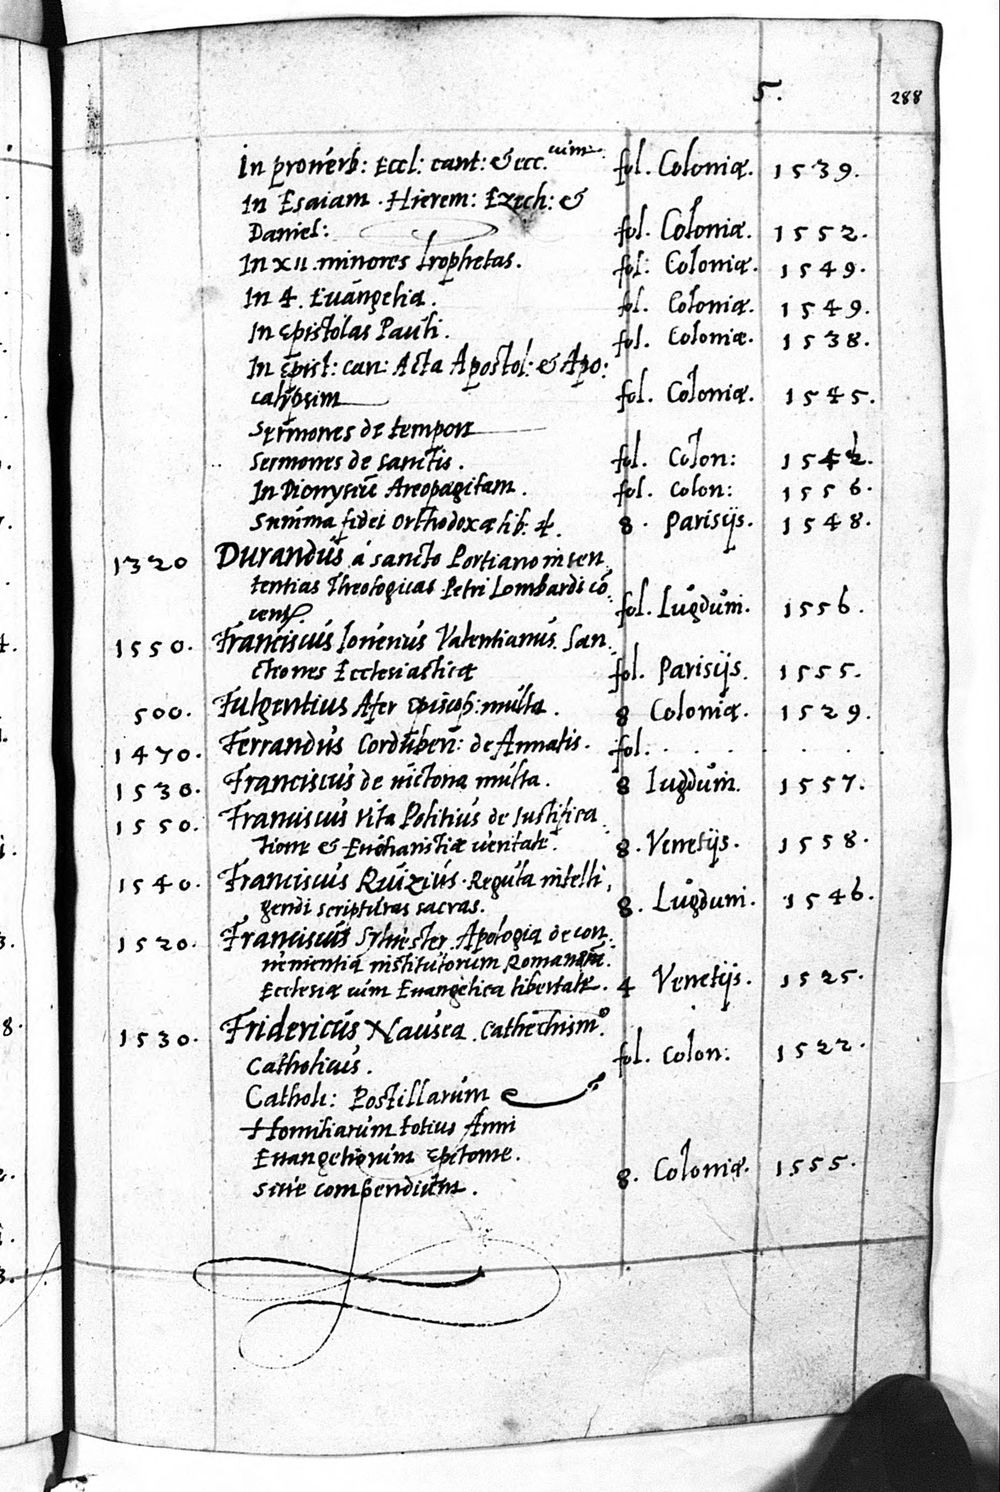 5.
288
In prouerb: Eccl: cant: & ecc. fol. Coloniæ. 1539.
In Esaiam. Hierem: Ezech: &
Daniel: fol. Coloniæ. 1552.
In XII minores Prophetas. fol. Coloniæ. 1549.
In 4. Euangelia. fol. Coloniæ. 1549.
In Epistolas Pauli. fol. Coloniæ. 1538.
In Epist: can: Acta Apostol: & Apo:
calipsim fol. Coloniæ. 1545.
Sermones de tempore
Sermones de sanctis. fol. Colon:
In Dionysiū Areopagitam. fol. Colon: 1556.
Summa fidei orthodoxæ lib. 4. 8. Parisijs. 1548.
1320 Durandus á sancto Portiano in sen,
tentias Theologicas Petri Lombardi cō,
fol. Lugduni. 1556.
1550. Franciscus Iouerius Valentianus. San,
ctiones Ecclesiasticæ fol. Parisijs. 1555.
500. Fulgentius Afer Episcop: multa. 8 Coloniæ. 1529.
1470. Ferrandus Cordubeñ: de Annatis. fol. . . .
1530. Franciscus de uictoria multa. 8 Lugduni. 1557.
1550. Franciscus Vita Politius de Iustifica
tione & Eucharistiæ ueritate. 8. Venetijs. 1558.
1540. Franciscus Ruizius. Regula intelli,
gendi scripturas sacras. 8. Lugduni. 1546.
1520. Franciscus Syluester. Apologia de con,
uenientia institutorum
Ecclesiæ cum Euangelica libertate. 4 Venetijs. 1525.
1530. Fridericus Nausea. Cathechism⁹
Catholicus. fol. Colon: 1522.
Catholi: Postillarum &
Homiliarum totius Anni
Euangeliorum Epitome.
siue compendium. 8. Coloniæ. 1555.